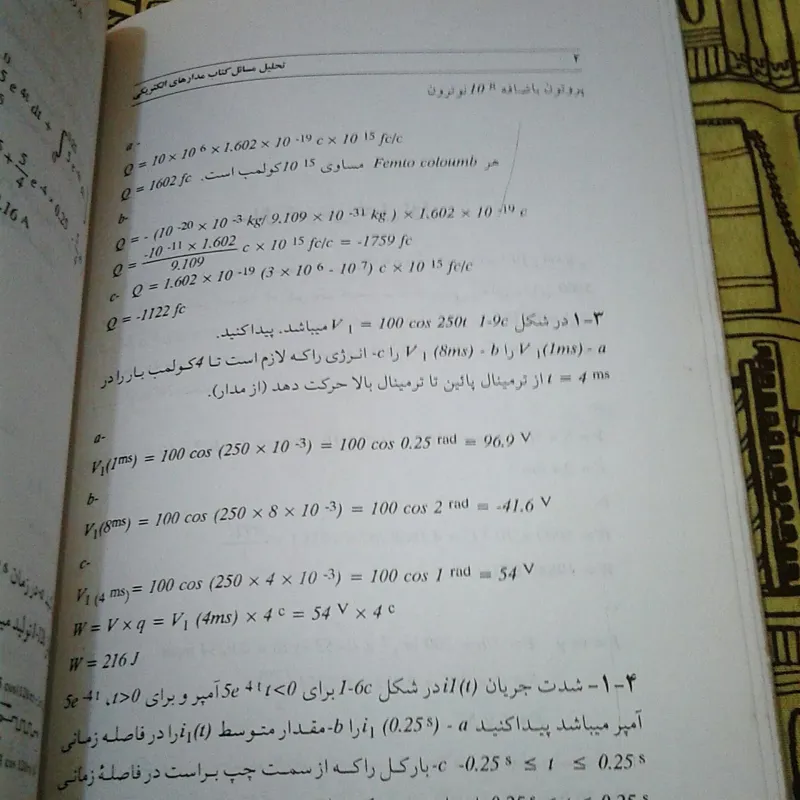 ۲ تحلیل مسائل کتاب مدارهای الکتریکی
پروتون باضافه 10 8 نوترون
a -
Q = 10 × 10 6 × 1.602 × 10 -19 c × 10 15 fc/c
هر Femto coloumb مساوی 10 15 کولمب است. Q = 1602 fc
b-
Q = - (10 -20 × 10 -3 kg/ 9.109 × 10 -31 kg ) × 1.602 × 10 -19 c
Q = -10 -11 × 1.602 / 9.109 c × 10 15 fc/c = -1759 fc
c- Q = 1.602 × 10 -19 (3 × 10 6 - 10 7) c × 10 15 fc/c
Q = -1122 fc
۱-۳ در شکل 1-9c V 1 = 100 cos 250t میباشد. پیدا کنید.
V 1(1ms) - a را V 1 (8ms) - b را c- انرژی را که لازم است تا 4 کولمب بار را در
t = 4 ms از ترمینال پائین تا ترمینال بالا حرکت دهد (از مدار).
a-
V1(1ms) = 100 cos (250 × 10 -3) = 100 cos 0.25 rad = 96.9 V
b-
V1(8ms) = 100 cos (250 × 8 × 10 -3) = 100 cos 2 rad = -41.6 V
c-
V1 (4 ms) = 100 cos (250 × 4 × 10 -3) = 100 cos 1 rad = 54 V
W = V × q = V1 (4ms) × 4 c = 54 V × 4 c
W = 216 J
۱-۴- شدت جریان i1(t) در شکل 1-6c برای t<0 5e 4t آمپر و برای t>0، 5e -4t
آمپر میباشد پیدا کنید i1 (0.25 s) - a را b- مقدار متوسط i1(t) را در فاصله زمانی
-0.25 s ≤ t ≤ 0.25 s c- بار کل را که از سمت چپ براست در فاصلهٔ زمانی